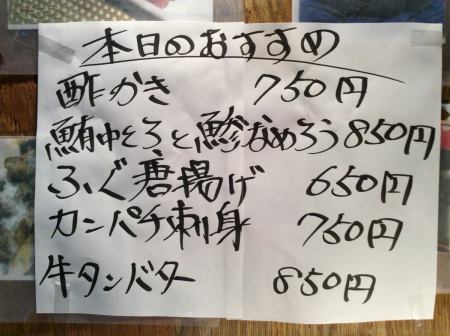 本日のおすすめ
酢かき 750円
鮪中とろと鯵なめろう 850円
ふぐ唐揚げ 650円
カンパチ刺身 750円
牛タンバター 850円